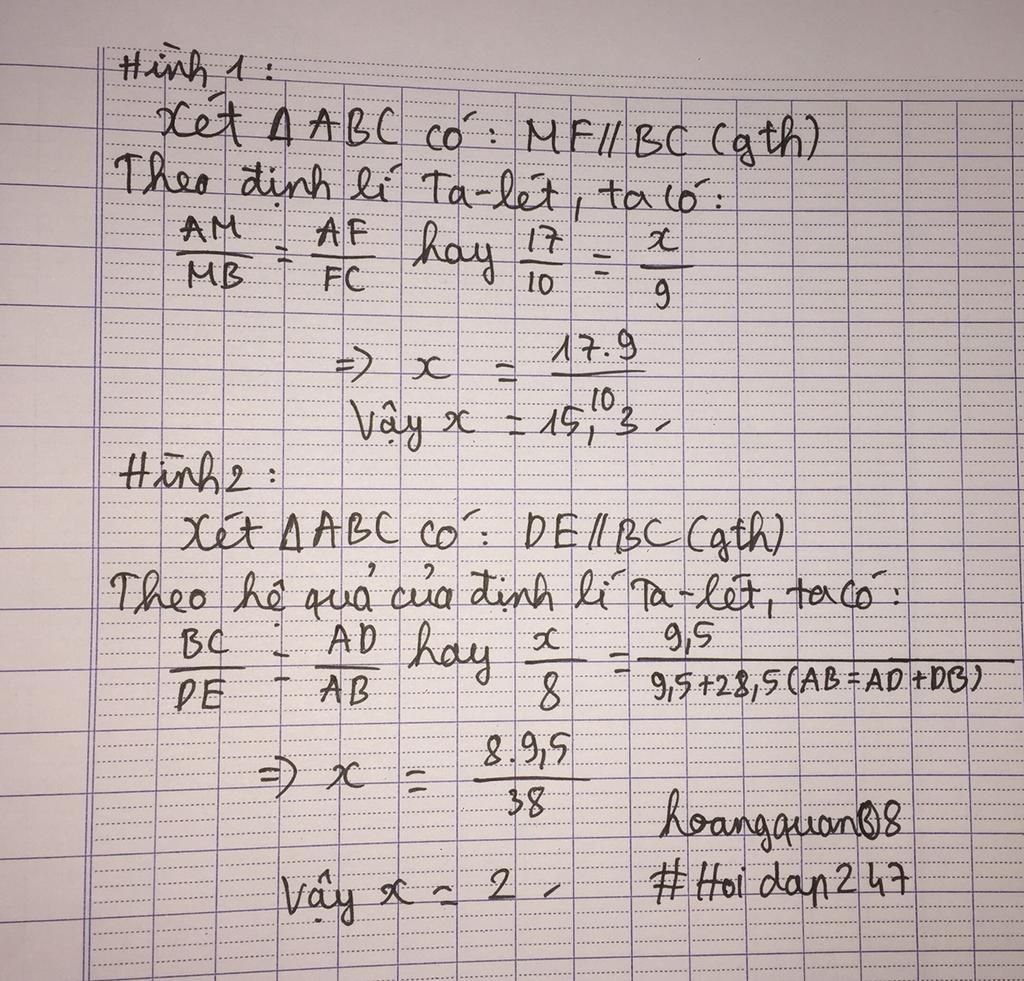 Hình 1:
Xét Δ ABC có: MF // BC (gth)
Theo định lí Ta-lét, ta có:
AM/MB = AF/FC hay 17/10 = x/9
=> x = 17.9/10
Vậy x = 15,3
Hình 2:
Xét Δ ABC có: DE // BC (gth)
Theo hệ quả của định lí Ta-lét, ta có:
BC/DE = AD/AB hay x/8 = 9,5/9,5+28,5 (AB = AD + DB)
=> x = 8.9,5/38
hoangquan08
Vậy x = 2
#Hoidap247